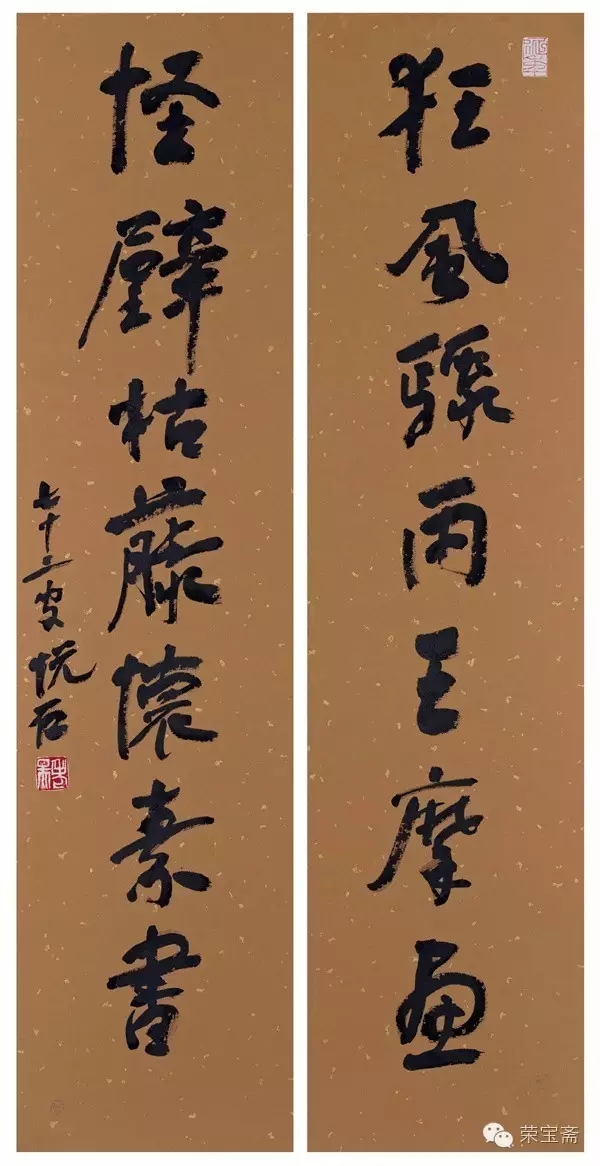 狂風驟雨王摩畫
怪壁枯藤懷素書
七十二叟石
荣宝斋